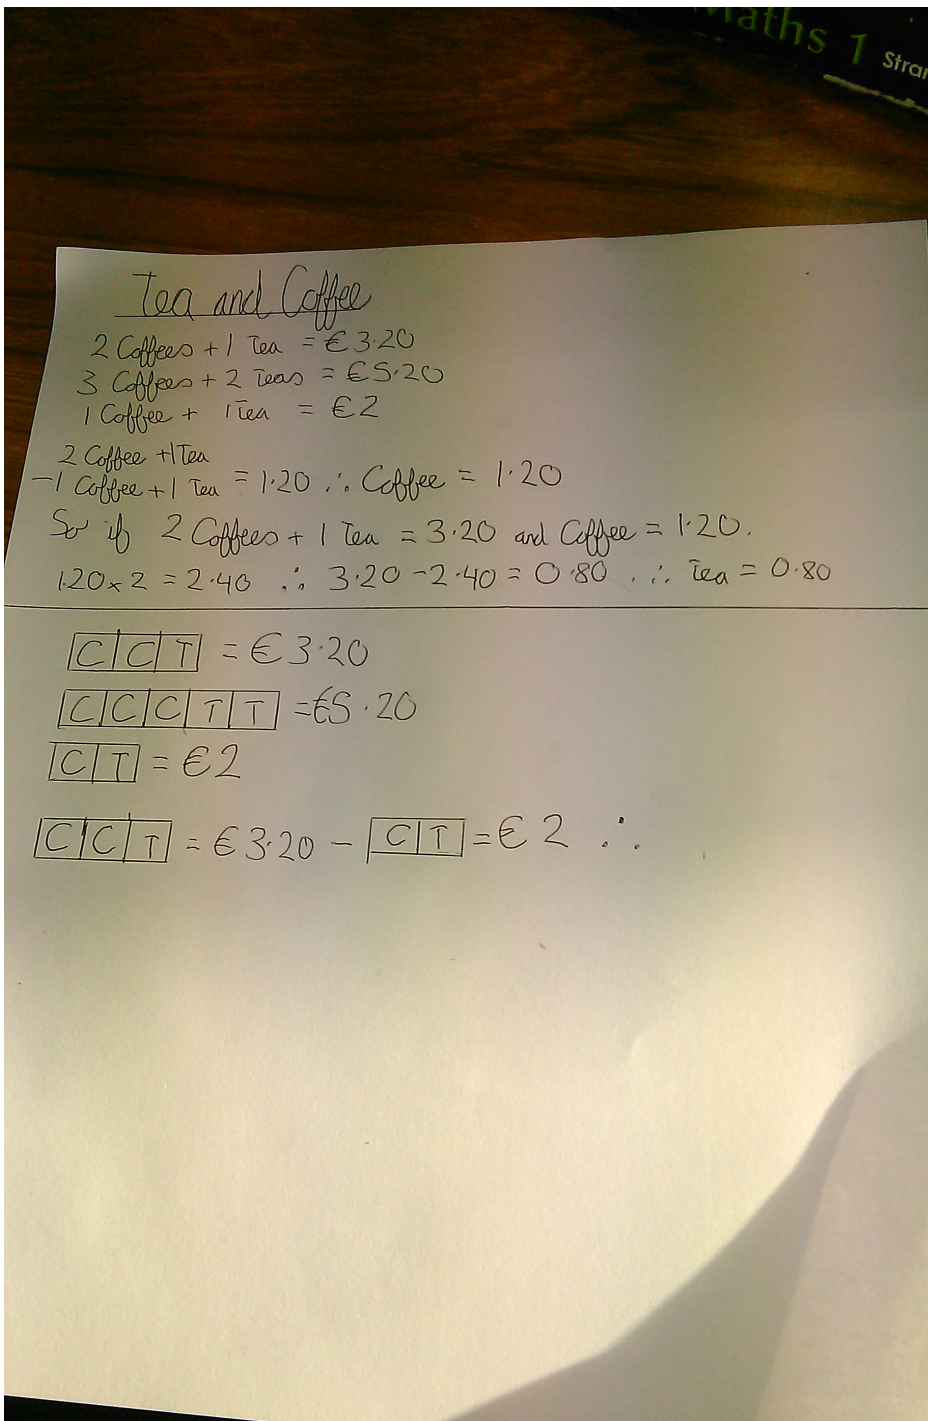 Maths 1 Stran
Tea and Coffee
2 Coffees + 1 Tea = €3.20
3 Coffees + 2 Teas = €5.20
1 Coffee + 1 Tea = €2
2 Coffee + 1 Tea
-1 Coffee + 1 Tea = 1.20 ∴ Coffee = 1.20
So if 2 Coffees + 1 Tea = 3.20 and Coffee = 1.20.
1.20 x 2 = 2.40 ∴ 3.20 - 2.40 = 0.80 ∴ Tea = 0.80
C C T = €3.20
C C C T T = €5.20
C T = €2
C C T = €3.20 - C T = €2 ∴